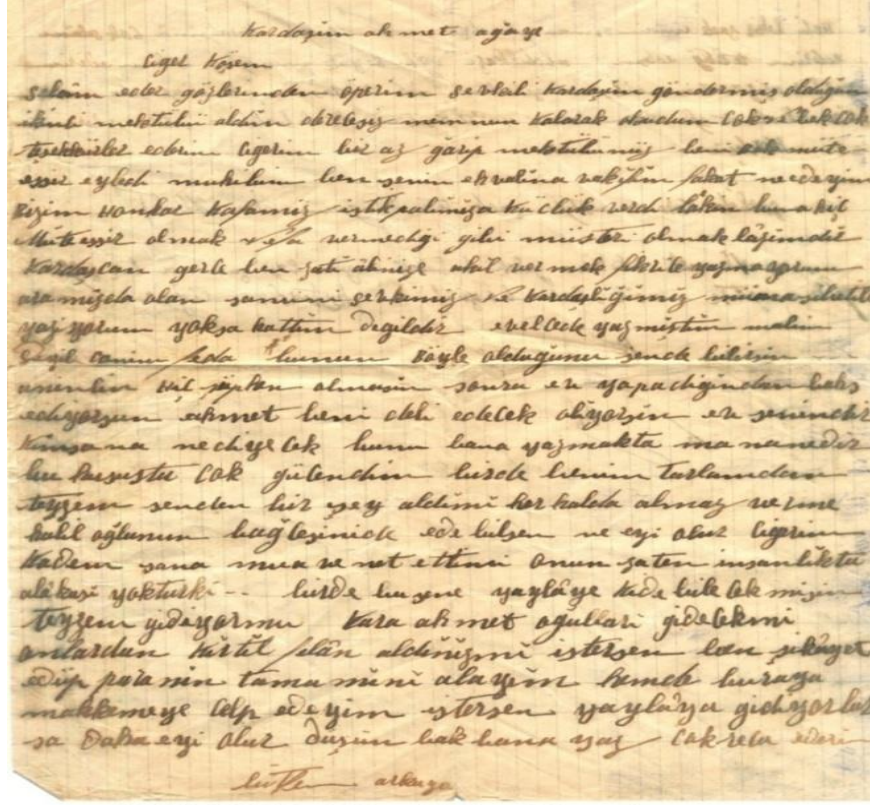 Kardaşim ahmet ağaye
Ciger Köşem
selâm eder gözlerinden öperim sevkili Kardaşim göndermiş oldiğun
mektubuü aldim memnun Kalarak okudum Cok
teşekkürler ederim Cigerim bir az garip mektübünüz beni cok mute
essir eyledi ben senin ahvalina vakifim fakat ne edeyim
Bizim istikpalimiza Kücluk verdi lâkin
Muteessir olmak fa vermedigi gibi müsteri olmak lâzimdir
Kardaşcan gerce ben zati âlinize akil vermek fikrile yazmayorum
aramizda olan samimi sevkimiz ve Kardaşliğimiz
yaziyorum yoksa hattim degildir evelcede yazmiştim malim
degil canim feda bunun Böyle olduğunu sende bilirsin
olmasin sonra ev yapadiğindan bahs
ediyorsun ahmet beni deli edecek oliyorsin ev senindir
Kimsana nediyecek bunu bana yazmakta mana nedir
bu hususta cok gücendim birde benim tarlamdan
teyzem senden bir şey aldimi her halda almaz verme
halil oğlunun bağcesinide ede bilsen ne eyi olur Cigerim
Kadem sana muavenet ettimi onun zaten insanlikta
alâkasi yokturki -- birde bu sene yaylâye kide bilecekmisin
teyzem gidiyormu Kara ahmet oğullari gidecekmi
onlardan kirtil filân aldinizmi istersen ben şikâyet
edip paranin tamamini alayim hemde buraya
mahkemeye celp edeyim istersen yaylâya gidiyorlar
sa Daha eyi olur Düşün bak bana yaz Cok reca ederi
lütfen arkaya